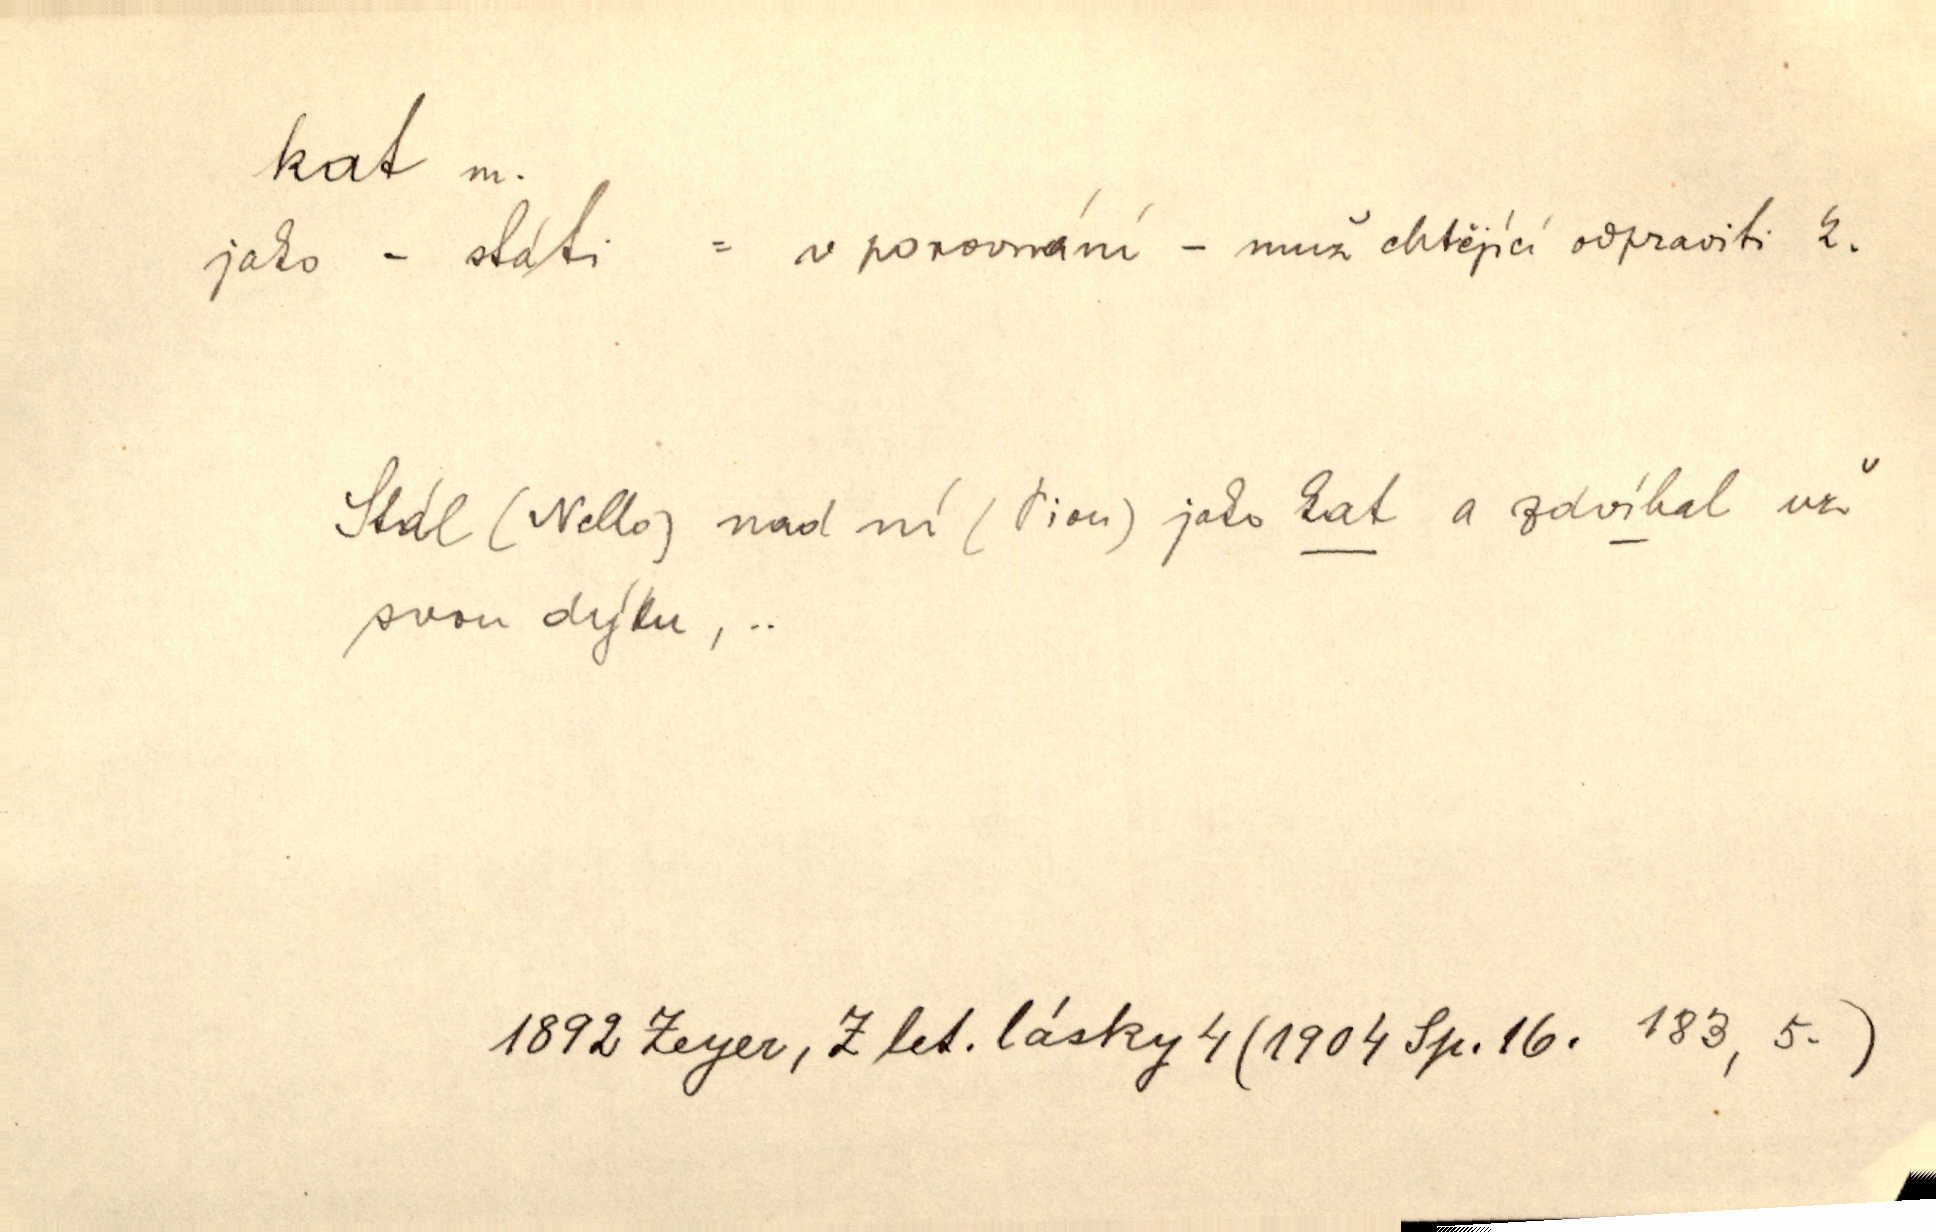 kat m.
jako - státi = v porovnání - muž chtějící odpraviti k.
Stál (Nello) nad ní (Piou) jako kat a zdvíhal už
svou dýku, ..
1892 Zeyer, Z let. lásky 4 (1904 Sp. 16. 183, 5.)